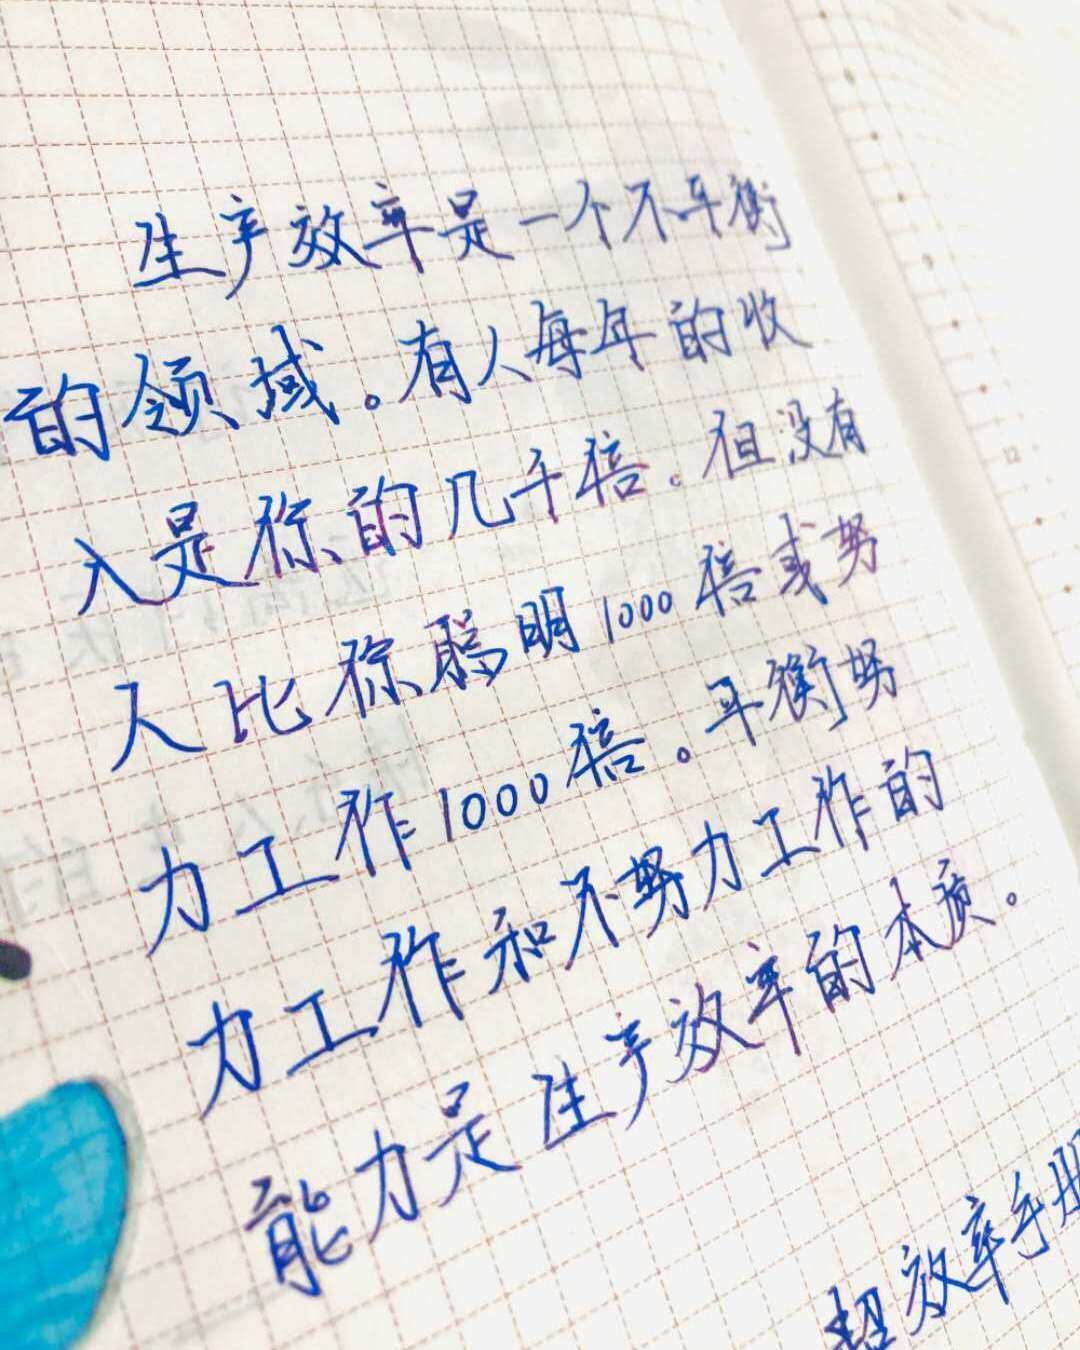 生产效率是一个不平衡
的领域。有人每年的收
入是你的几千倍。但没有
人比你聪明1000倍或努
力工作1000倍。平衡努
力工作和不努力工作的
能力是生产效率的本质。
超效率手册